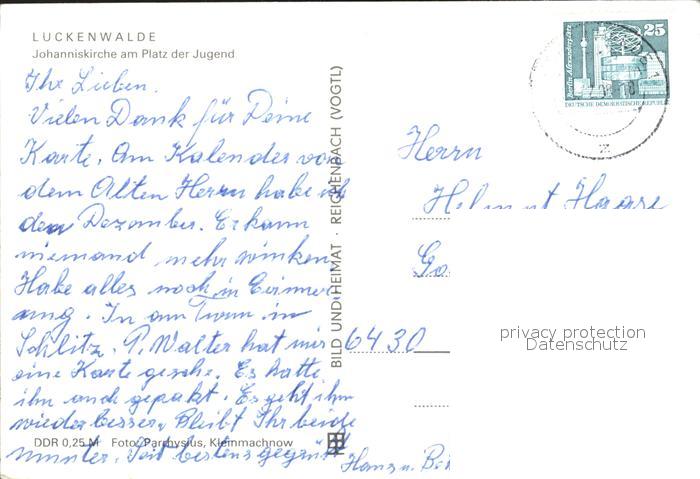 LUCKENWALDE
Johanniskirche am Platz der Jugend
Ihr Lieben.
Vielen Dank für Deine
Karte. Am Kalender von
dem Alten Herrn habe ich
den Dezember. Er kann
niemand mehr winken
Habe alles noch in Erinner
ung. In am Turm in
Schlitz. P. Walter hat mir
eine Karte geschr. Es hatte
ihn auch gepakt. Es geht ihm
wieder besser. Bleibt Ihr beide
munter. Seit bestens gegrüßt
Hans u.
DDR 0,25 M Foto: Parchysius, Kleinmachnow
BILD UND HEIMAT · REICHENBACH (VOGTL)
25
Berlin, Alexanderplatz
DEUTSCHE DEMOKRATISCHE REPUBLIK
z
Herrn
Helmut Haase
6430
privacy protection
Datenschutz